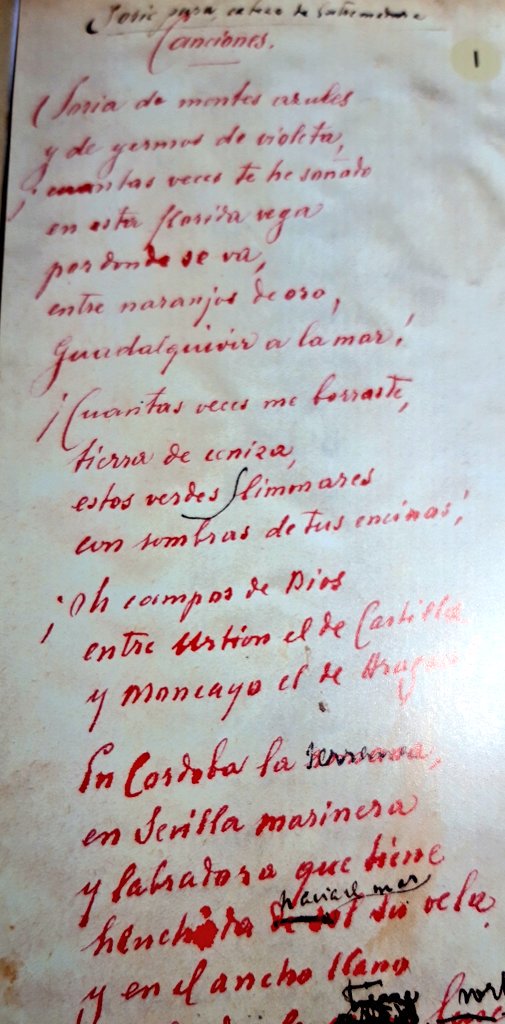 Soria pura, cabeza de Extremadura
Canciones.
1
Soria de montes azules
y de yermos de violeta,
¡cuantas veces te he soñado
en esta florida vega
por donde se va,
entre naranjos de oro,
Guadalquivir a la mar!
¡Cuantas veces me borraste,
tierra de ceniza,
estos verdes limonares
con sombras de tus encinas!
¡Oh campos de Dios
entre Urbion el de Castilla
y Moncayo el de Aragon
En Cordoba la serrana,
en Sevilla marinera
y labradora que tiene
hacia el mar
henchida su vela
y en el ancho llano